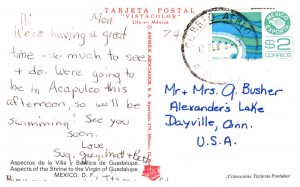 Hi
Mon.
TARJETA POSTAL
"VISTACOLOR"
Lito en México
We're having a great
time - so much to see
+ do. Were going to
be in Acapulco this
afternoon, so we'll be
swimming! See you
soon.
Love
Sue, Guy, Matt + Beth
Aspectos de la Villa y Basílica de Guadalupe.
Aspects of the Shrine to the Virgin of Guadalupe.
MEXICO, D. F.
CORREO AEREO
MEXICO
EXPORTA
$2
CORREOS
Mr + Mrs. A. Busher
Alexander's Lake
Dayville, Conn.
U.S.A.
(Colecciona Tarjetas Postales)